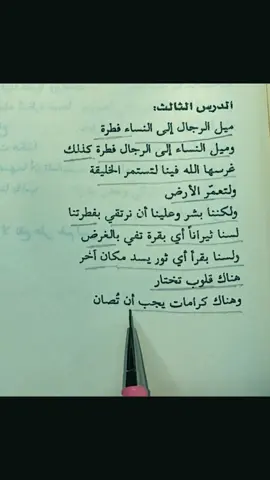 الدرس الثالث:
ميل الرجال إلى النساء فطرة
وميل النساء إلى الرجال فطرة كذلك
غرسها الله فينا لتستمر الخليقة
ولتعمّر الأرض
ولكننا بشر وعلينا أن نرتقي بفطرتنا
لسنا ثيراناً أي بقرة تفي بالغرض
ولسنا بقراً أي ثور يسد مكان آخر
هناك قلوب تختار
وهناك كرامات يجب أن تُصان